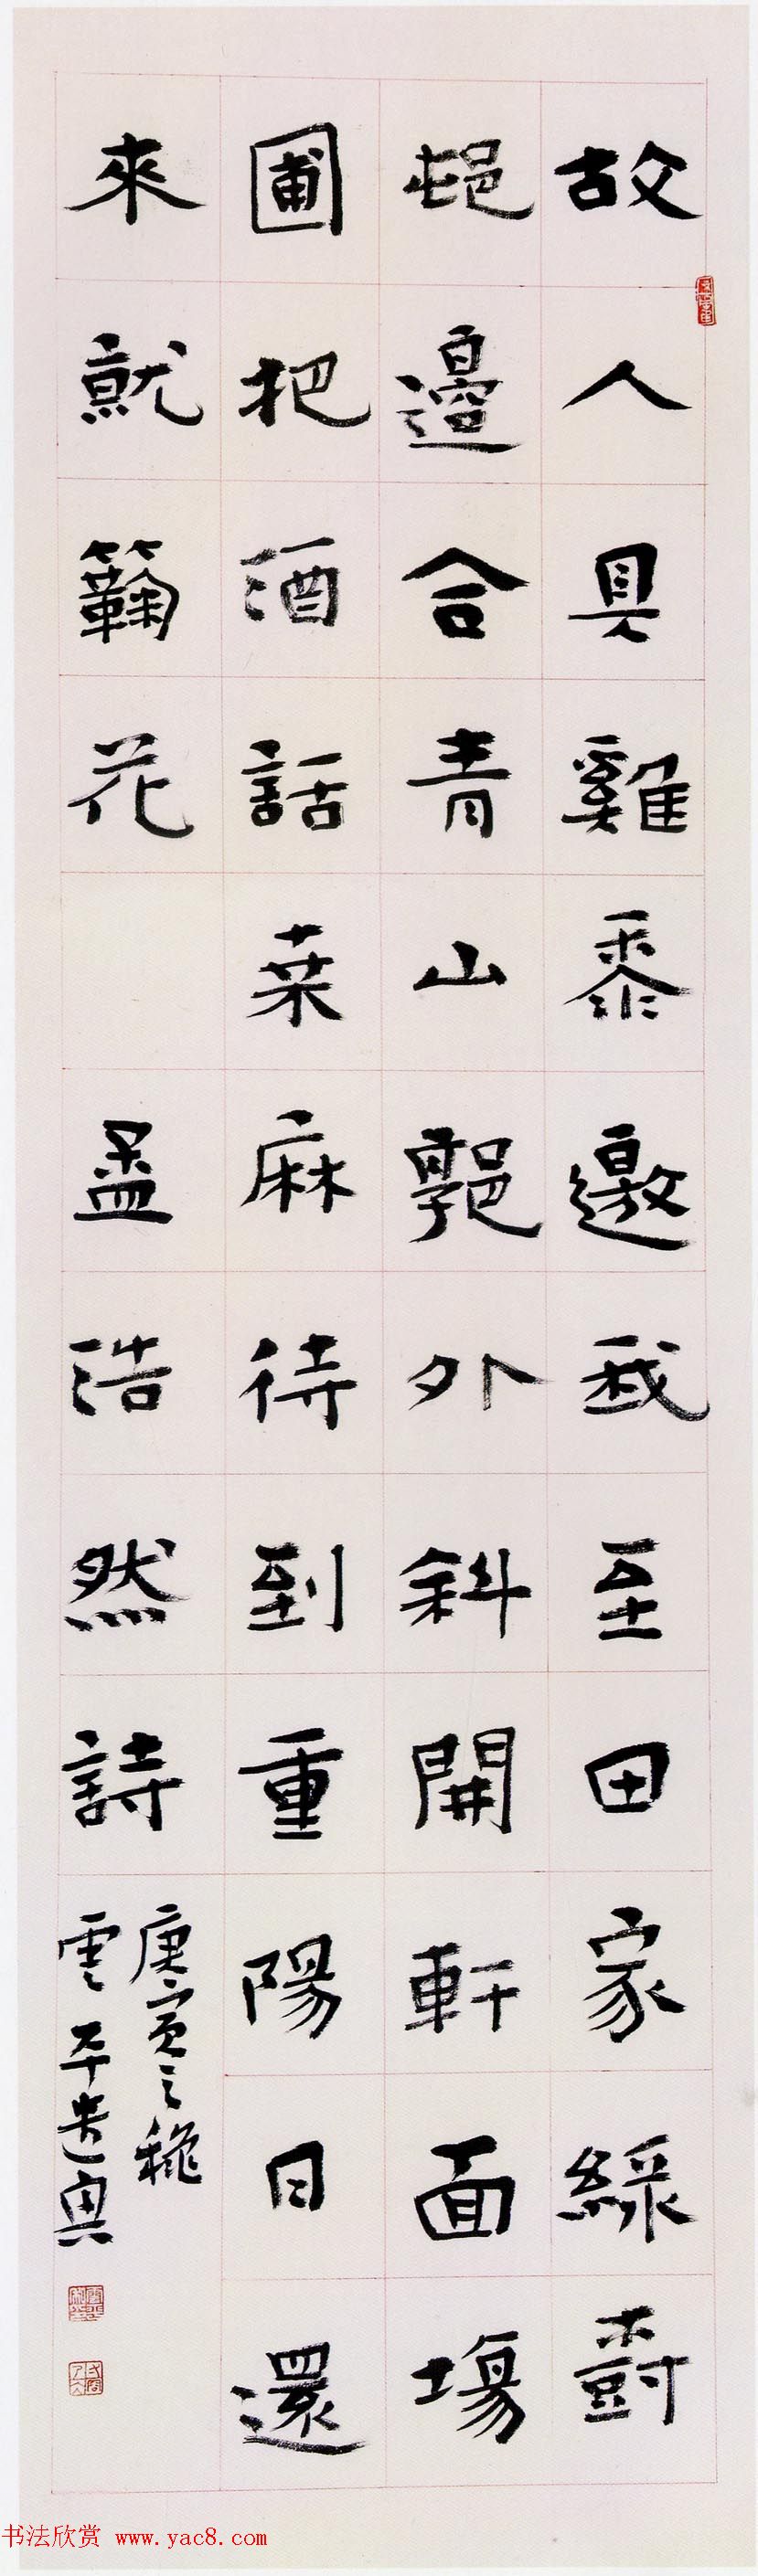 故人具雞黍邀我至田家綠樹
邨邊合青山郭外斜開軒面場
圃把酒話桑麻待到重陽日還
來就蘜花 孟浩然詩
庚寅之穐
雲平
书法欣赏 www.yac8.com